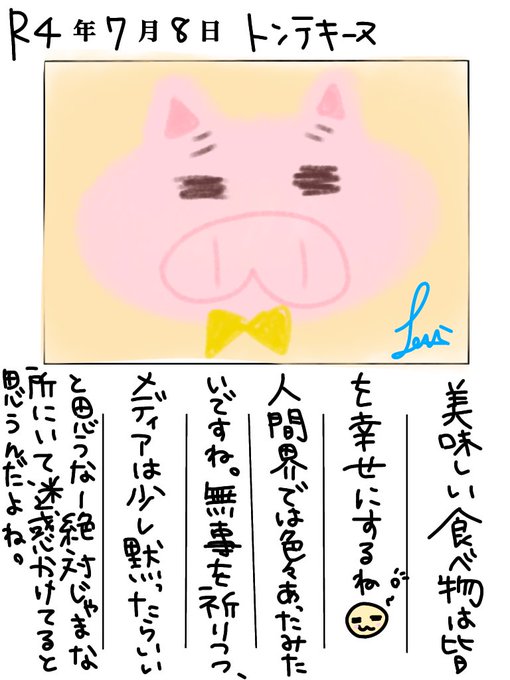 R4年7月8日 トンテキーヌ
Levi
美味しい食べ物は皆
を幸せにするね
人間界では色々あったみた
いですね。無事を祈りつつ、
メディアは少し黙ったらいい
と思うなー絶対じゃまな
所にいて迷惑かけてると
思うんだよね。